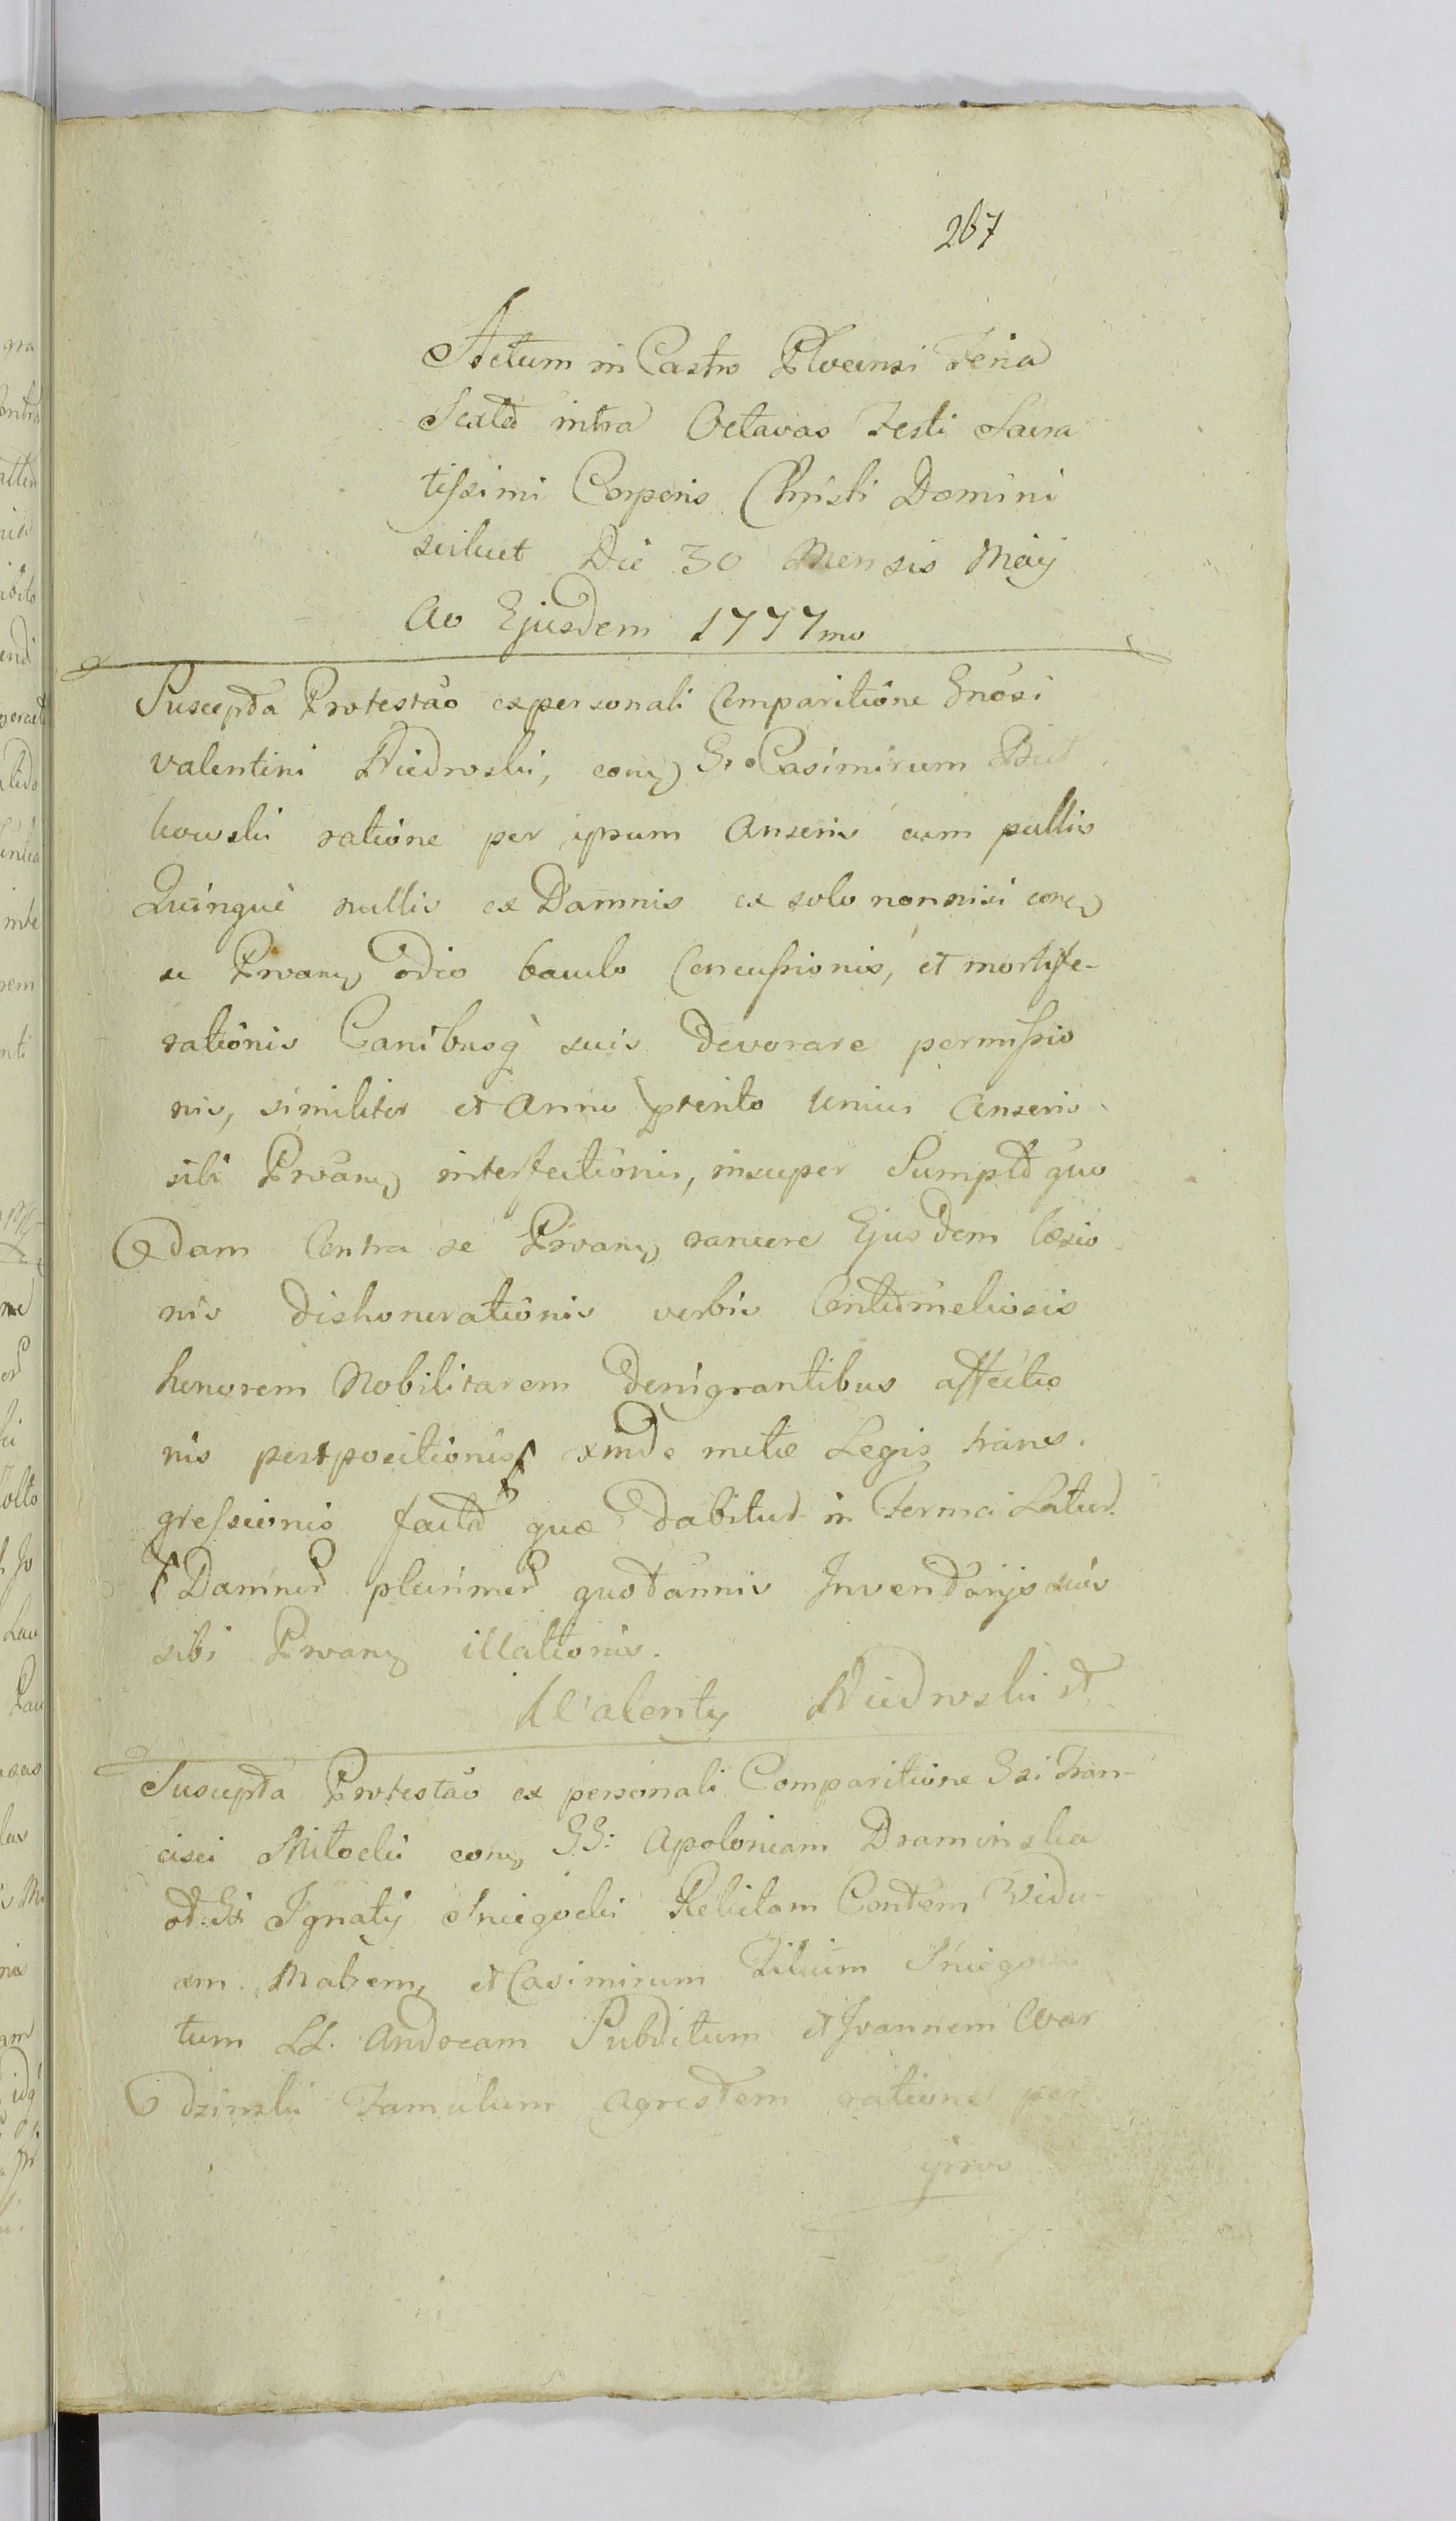 267
Actum in Castro Plocensi Feria
Sexta intra Octavas Festi Sacra
tissimi Corporis Christi Domini
scilicet Die 30 Mensis Maij
Ao Ejusdem 1777mo
Suscepta Protestao ex personali Comparitione Gnosi
Valentini Niedroski, con Gr Casimirum
kowski ratione per ipsum Anseris cum pullis
Quinque nullis ex Damnis ex solo nonnisi con
se Proan odio baculo Concussionis, et mortife-
rationis Canibusq suis Devorare permissio
nis, similiter et Anno pterito Unius Anseris
sibi Proan interfectionis, insuper Sumpto quo
dam Contra se Proan rancore Ejusdem Laesio
nis dishonorationis verbis Contumeliosis
honorem Nobilitarem Denigrantibus affectio
nis postpocitionis exinde metae Legis trans.
gressionis facta quae Dabitur in Forma Latiud
Damnor plurimor quotannis Inventarijs suis
sibi Proan illationis.
Walenty Niedroski
Suscepta Protestao ex personali Comparitione Gsi Fran-
cisci Mitocki con GG: Apoloniam Draminska
ol: Gsi Ignatij Sniegocki Relictam Contem Vidu-
am Matrem, et Casimirum Filium
tum LL. Andream Subditum et Joannem War
dzinski Famulum agrestem ratione per
ipsos